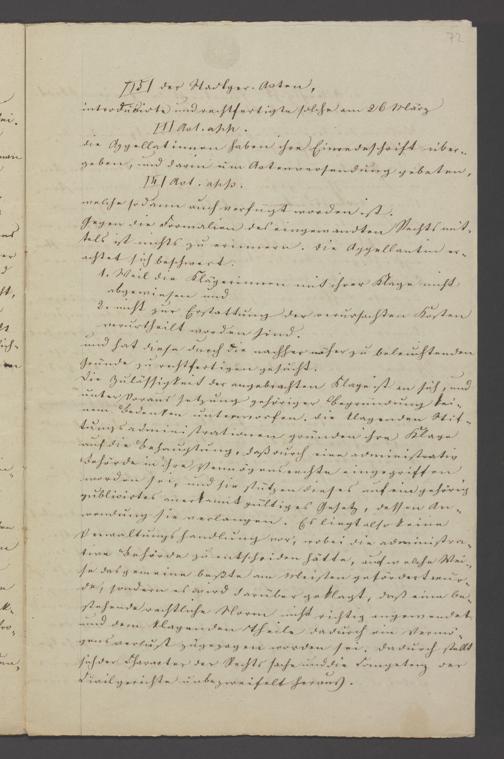 72
[15] der Stadtger. Acten,
introducirte und rechtfertigte solche am 26 März
[1] Act. app.
die Appellatinnen haben ihre Einredeschrift über-
geben, und darin um Actenversendung gebeten,
Act. app.
welche sodann auch verfügt worden ist.
Gegen die Formalien des eingewandten Rechtsmit-
tels ist nichts zu erinnern. Die Appellantin er-
achtet sich beschwert:
1. Weil die Klägerinnen mit ihrer Klage nicht
abgewiesen und
2. nicht zur Erstattung der verursachten Kosten
verurtheilt worden sind.
und hat diese durch die nachher näher zu beleuchtenden
Gründe zu rechtfertigen gesucht.
Die Zulässigkeit der angebrachten Klage ist an sich, und
unter Voraussetzung gehöriger Begründung kei-
nem Bedenken unterworfen. Die klagenden Stif-
tungsadministrationen gründen ihre Klage
auf die Behauptung, daß durch eine administrative
Behörde in ihre Vermögensrechte eingegriffen
worden sei, und sie stützen dieses auf ein gehörig
publicirtes anerkannt gültiges Gesetz, dessen An-
wendung sie verlangen. Es liegt also keine
Verwaltungshandlung vor, wobei die administra-
tive Behörde zu entscheiden hätte, auf welche Wei-
se das gemeine Beßte am Meisten gefördert wür-
de, sondern es wird darüber geklagt, daß eine be-
stehende rechtliche Norm nicht richtig angewendet
und dem klagenden Theile dadurch ein Vermö-
gensverlust zugezogen worden sei. Dadurch stellt
sich der Character der Rechtssache und die Competenz der
Civilgerichte unbezweifelt heraus.